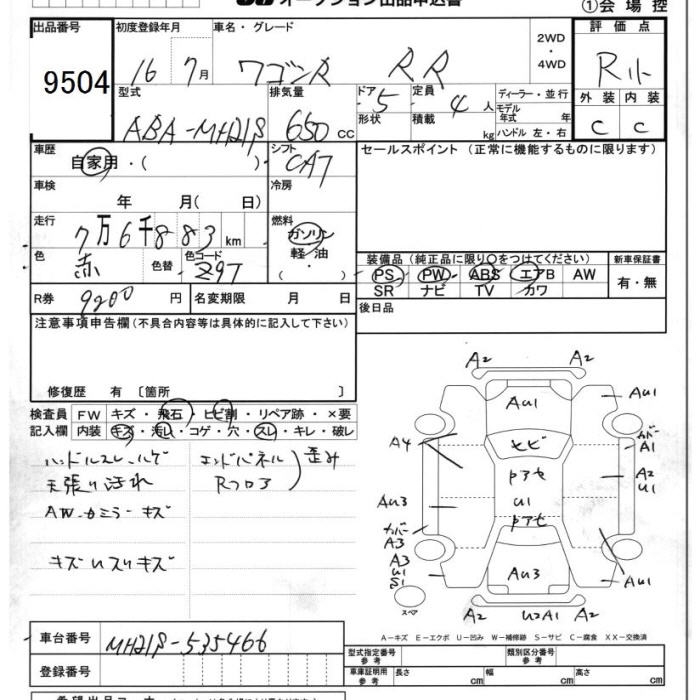 オークション出品申込書
①会場控
出品番号 9504
初度登録年月 16 7月
車名・グレード ワゴンR RR
2WD・4WD
評価点 R小
型式 ABA-MH21S
排気量 650 cc
ドア 5 形状
定員 4人 積載 kg
ディーラー・並行
モデル年式 年
ハンドル 左・右
外装 C 内装 C
車歴 自家用・( )
シフト CAT
セールスポイント (正常に機能するものに限ります)
車検 年 月( 日)
冷房
走行 7万6千883 km
燃料 ガソリン・軽油・
色 赤 色替 色コード Z9T
装備品(純正品に限り○をつけてください)
新車保証書 有・無
PS PW ABS エアB AW
SR ナビ TV カワ
R券 9200円 名変期限 月 日
後日品
注意事項申告欄(不具合内容等は具体的に記入して下さい)
修復歴 有〔箇所 〕
検査員記入欄 FW キズ・飛石・ヒビ割・リペア跡・×要
内装 キズ・汚レ・コゲ・穴・スレ・キレ・破レ
ハンドルスレ・ハゲ エンドパネル 歪み
天張り汚れ Rフロア
AW・カミラー キズ
キズUスリキズ
A2 A2
AU1 AU1
A4 ヒビ カバーA1
ドアセ A2 U1
AU3 U1
ドアセ
カバーA3
A3 U1 S1 AU3 AU1
スペア A2 U2A1
A-キズ E-エクボ U-凹み W-補修跡 S-サビ C-腐食 XX-交換済
車台番号 MH21S-535466
登録番号
型式指定番号 参考 類別区分番号 参考
車庫証明用 参考 長さ cm 幅 cm 高さ cm